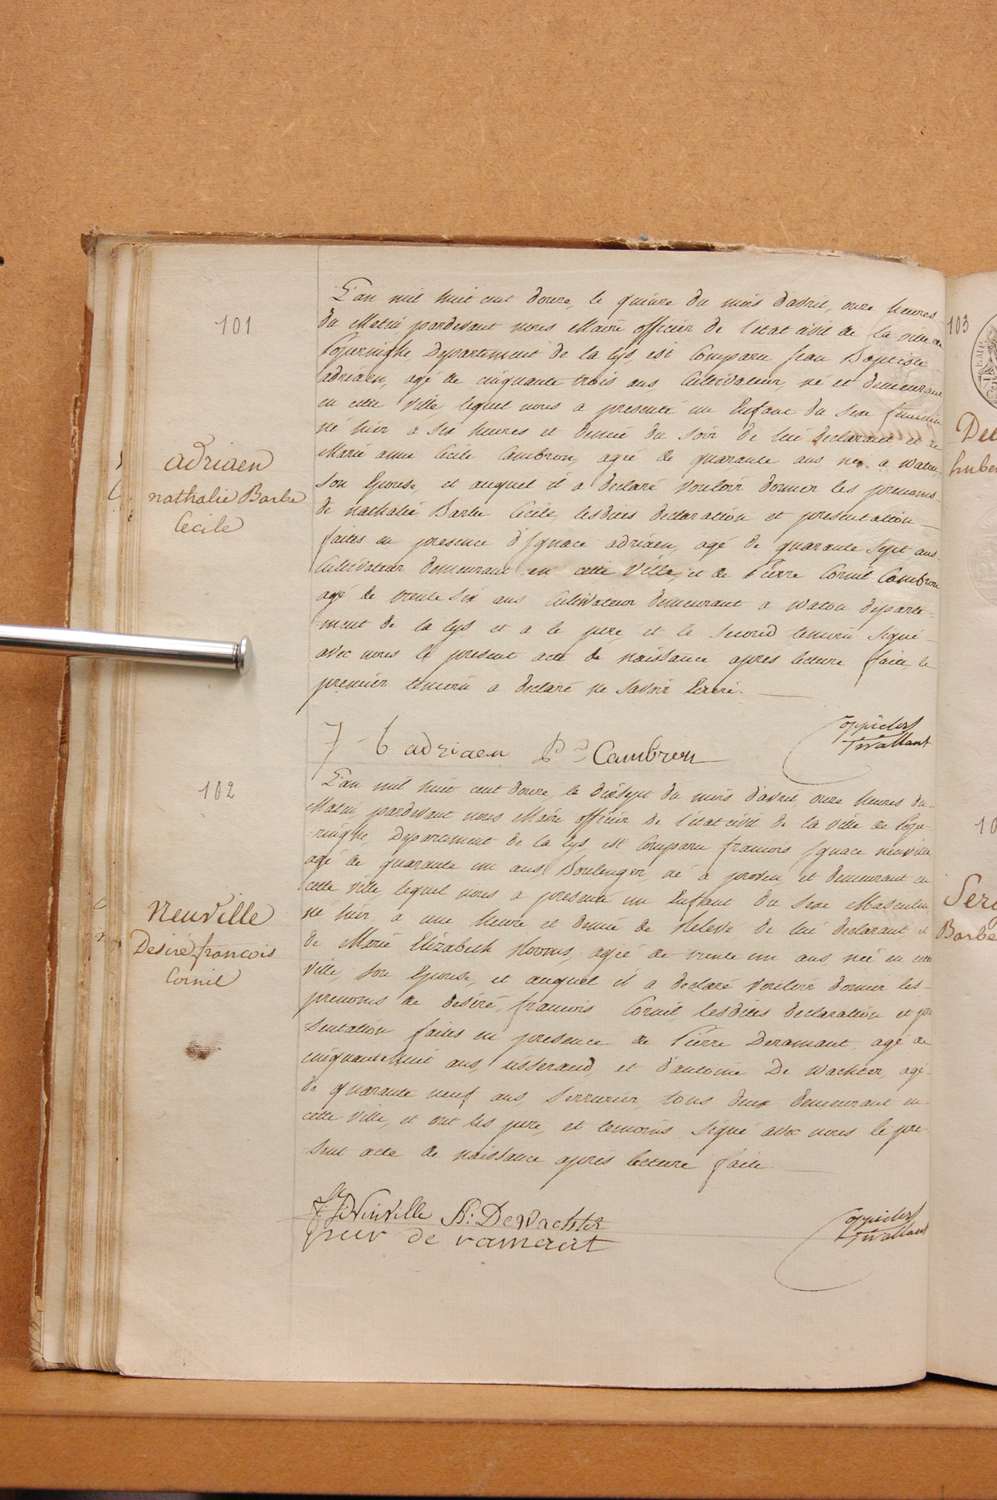 101
adriaen
nathalie Barbe
Cecile
L'an mil huit cent douze, le quinze du mois d'avril, onze heures
du Matin, pardevant nous Maire officier de l'etat civil de la ville de
Poperinghe Departement de la Lys est Comparu Jean Baptiste
adriaen, agé de cinquante trois ans Cultivateur, né et demeurant
en cette Ville, lequel nous a presenté un Enfant du Sexe feminin
né hier a six heures et demie du Soir de lui declarant et de
Marie anne Cecile Cambron, agée de quarante ans née a Watou,
Son Epouse, et auquel il a declaré Vouloir donner les prenoms
de Nathalie Barbe Cecile, lesdites declaration et presentation
faites en presence d'Ignace adriaen, agé de quarante Sept ans
Cultivateur demeurant en cette Ville, et de Pierre Cornil Cambron
agé de trente Six ans Cultivateur demeurant a Watou departe-
-ment de la Lys et a le pere et le Second temoin Signé
avec nous le present acte de naissance apres lecture faite le
premier temoin a declaré ne Savoir Ecrire.
J b adriaen P C Cambron
102
Neuville
Desiré, françois
Cornil
L'an mil huit cent douze le dixsept du mois d'avril onze heures du
Matin pardevant nous Maire officier de l'etat civil de la ville de Pope-
-ringhe, Departement de la Lys est Comparu francois Ignace neuville
agé de quarante un ans, Boulenger né a et demeurant en
cette ville lequel nous a presenté un Enfant du Sexe Masculin
né hier a une heure et demie de Relevé de lui declarant et
de Marie Elizabeth, agée de trente un ans née en cette
Ville, Son Epouse, et auquel il a declaré Vouloir donner les
prenoms de desiré, francois Cornil, lesdites declaration et pre
Sentation faites en presence de Pierre Deramaut, agé de
cinquantehuit ans, tisserand, et d'antoine De wachter, agé
de quarante neuf ans, Serrurier, tous deux demeurant en
cette Ville, et ont les pere, et temoins Signé avec nous le pre
Sent acte de naissance apres lecture faite
De Wachter
pier de ramaut
103